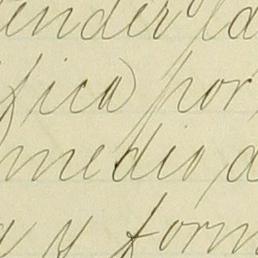 ender la
fica) por
medio d
a y form